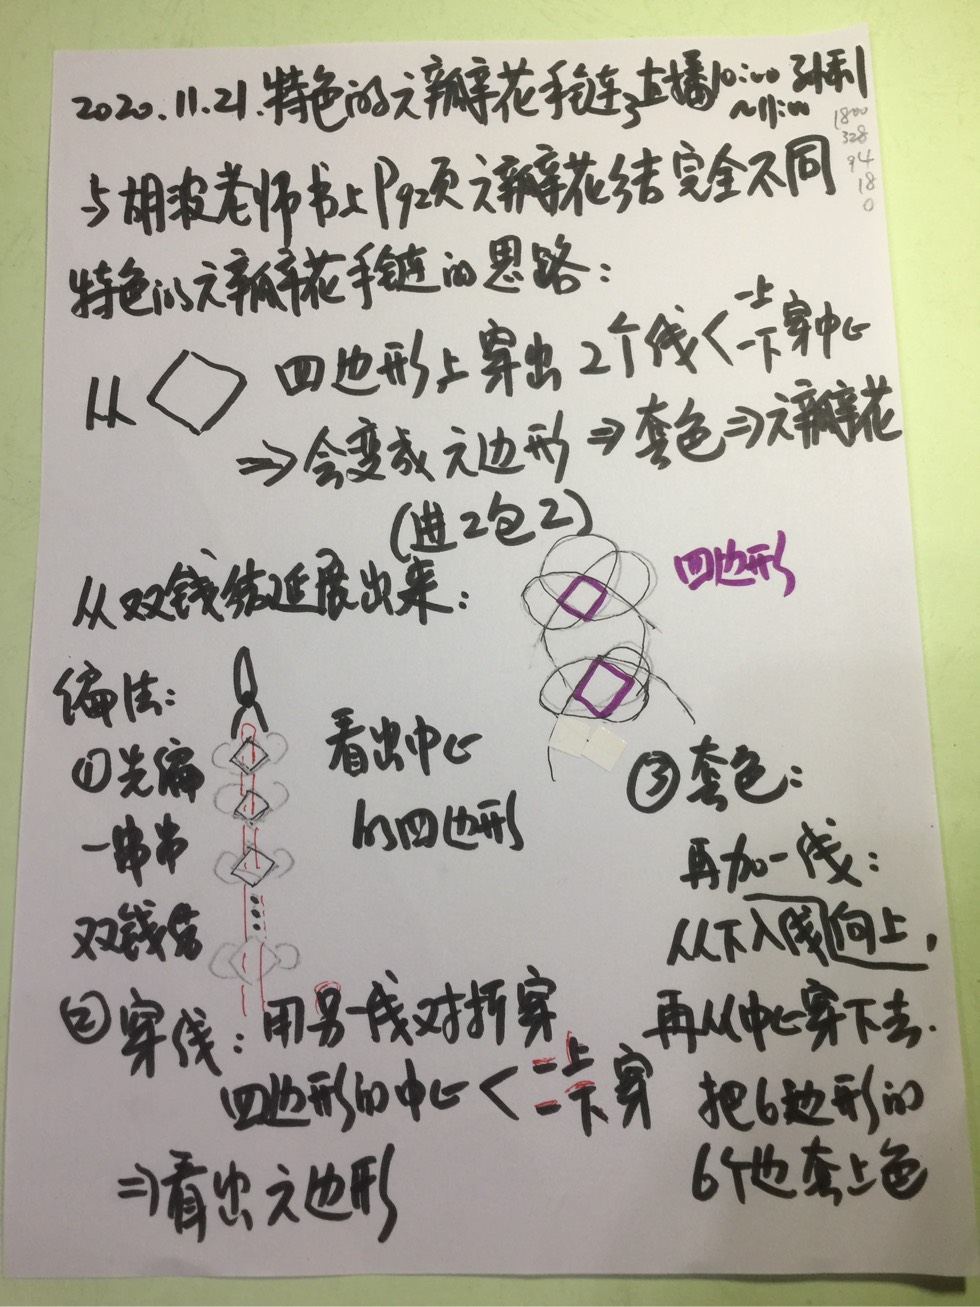 2020.11.21.特色的六瓣花手链3直播10:00
~11:00
1800
328
94
18
0
与胡波老师书上P92页六瓣花结完全不同
特色的六瓣花手链的思路:
从 四边形上穿出2个线<一上
一下穿中心
⇒会变成六边形⇒套色⇒六瓣花
(进2包2)
四边形
从双钱结延展出来:
编法:
①先编
一串串
双钱结
看出中心
的四边形
②穿线:用另一线对折穿
四边形的中心<一上
一下穿
⇒看出六边形
③套色:
再加一线:
从下入线向上,
再从中心穿下去.
把6边形的
6个边套上色